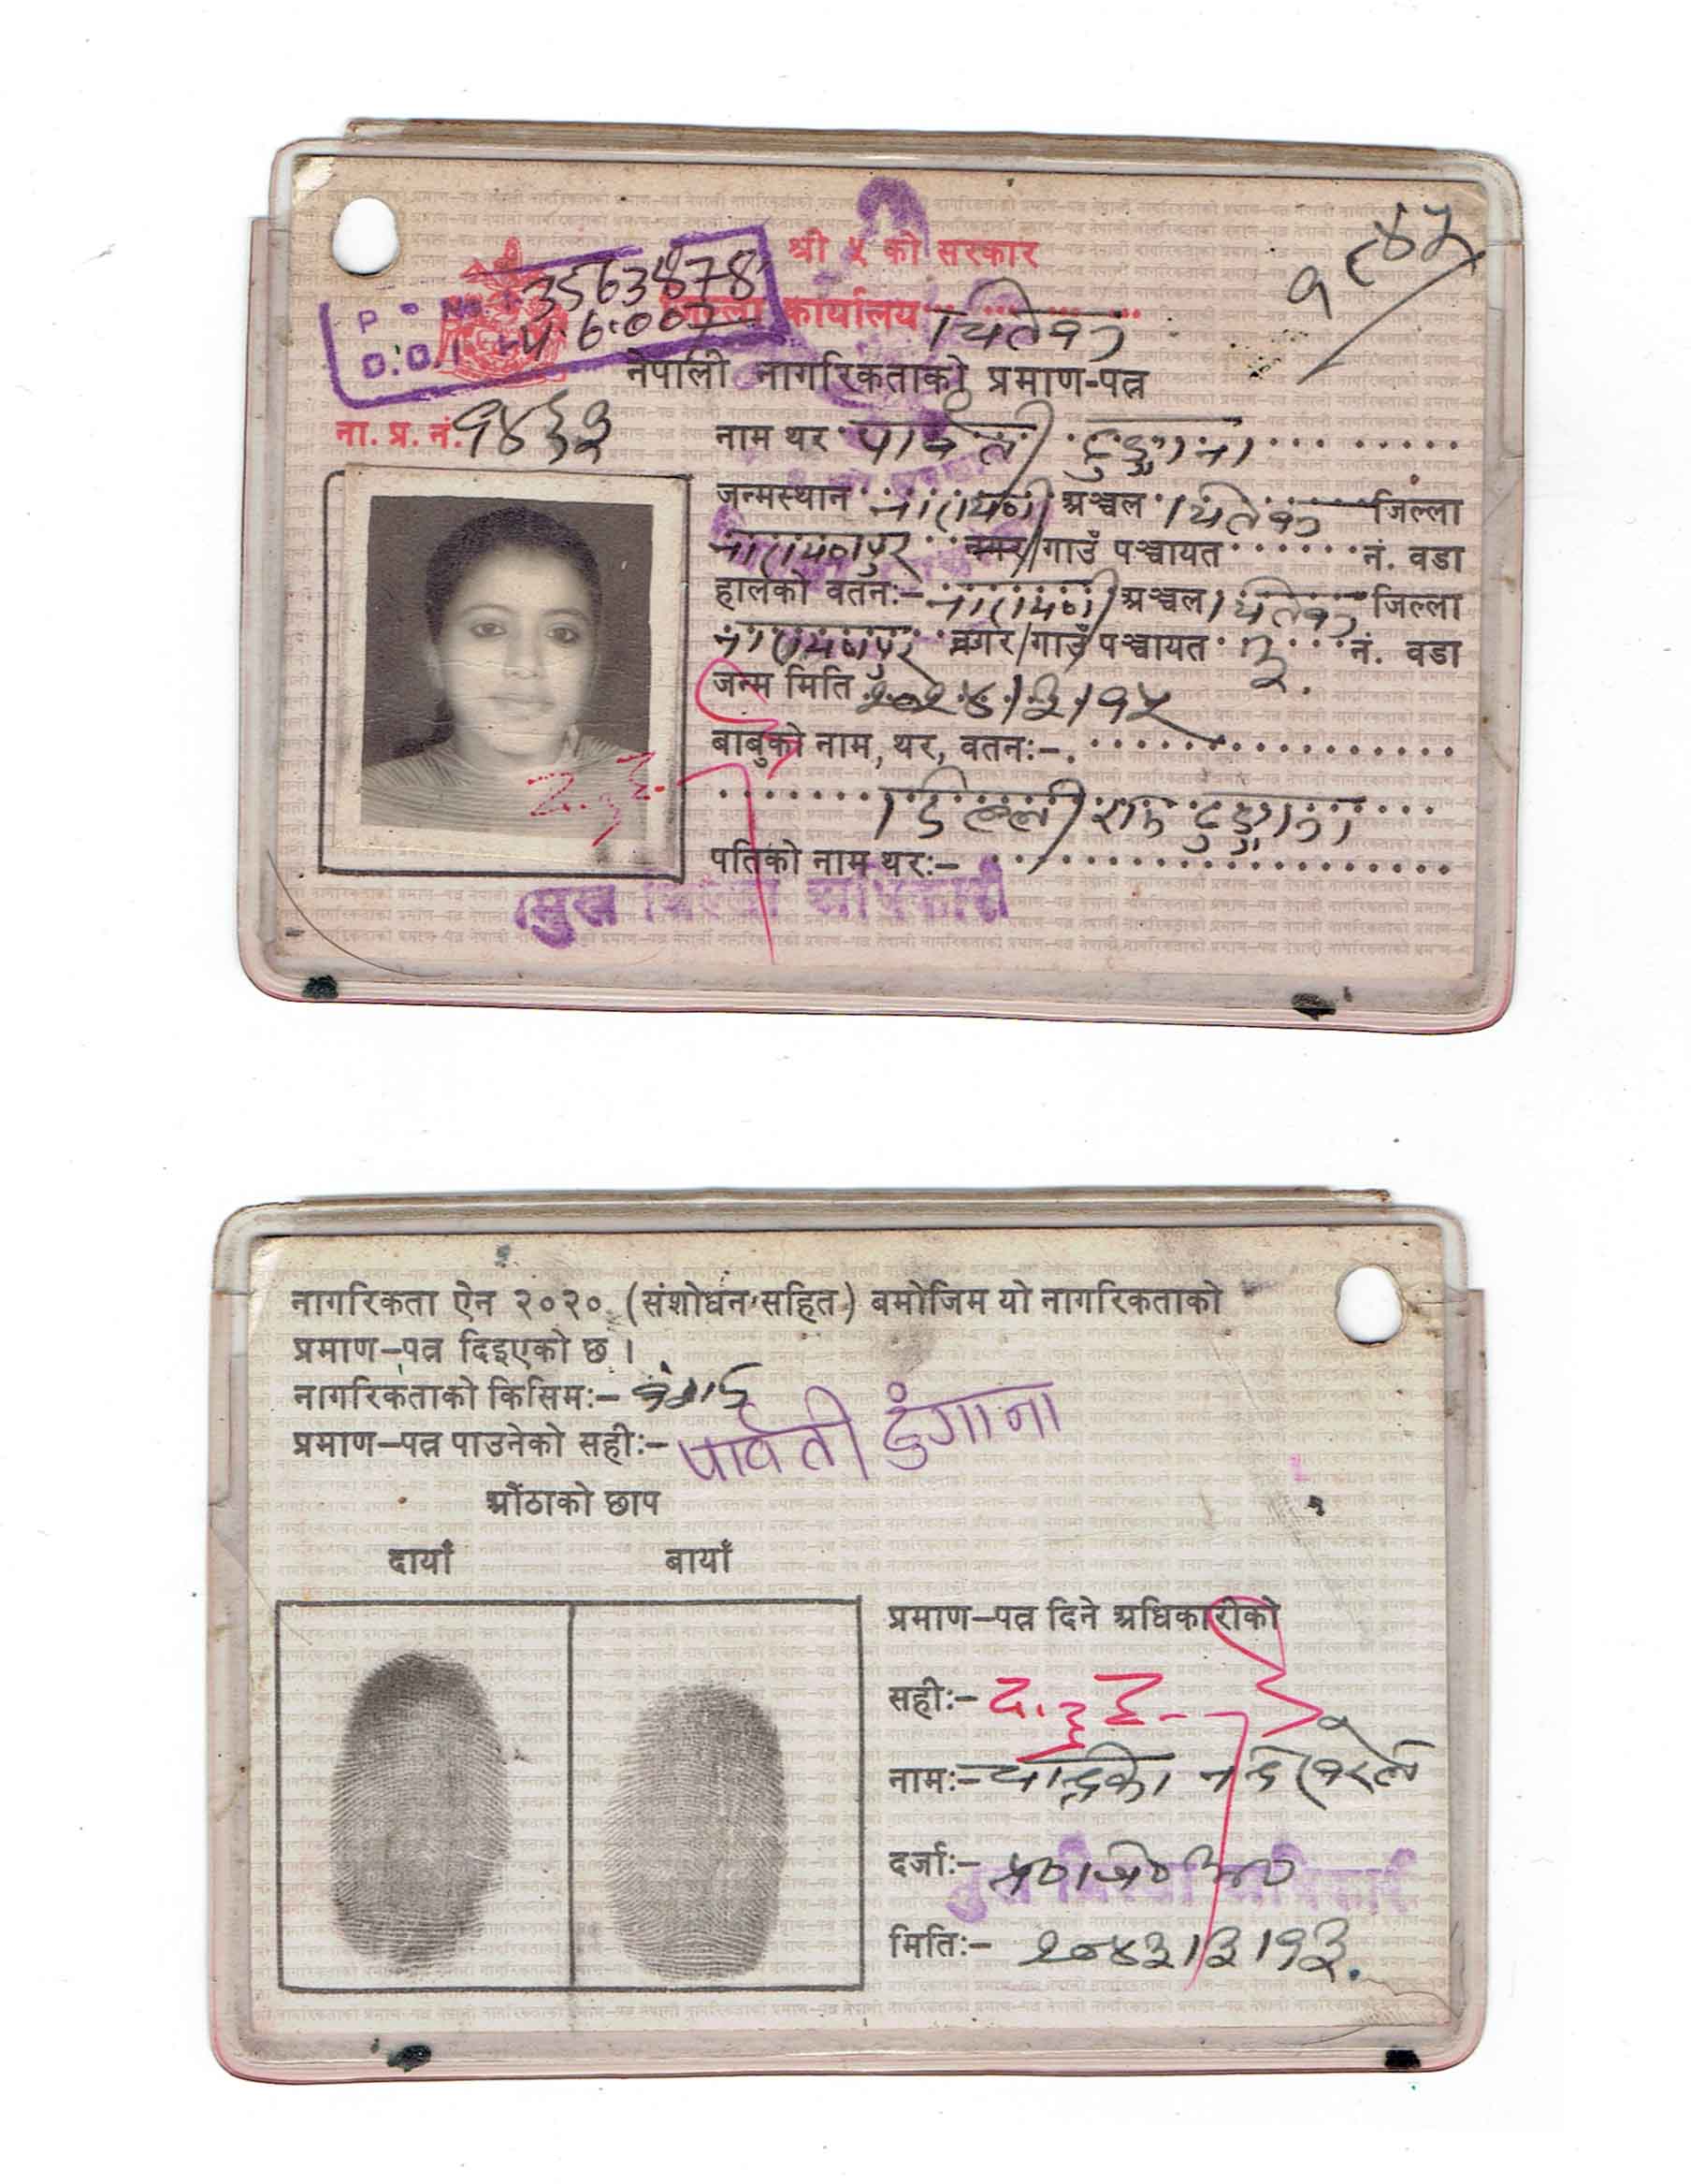 श्री ५ को सरकार
जिल्ला कार्यालय चितवन
P. No. 3563878
D.O.I. 4.6.007
नेपाली नागरिकताको प्रमाण-पत्र
ना. प्र. नं. १४६३
नाम थर पार्वती ढुङ्गाना
जन्मस्थान नारायणी अञ्चल चितवन जिल्ला
नारायणपुर नगर/गाउँ पञ्चायत नं. वडा
हालको वतनः- नारायणी अञ्चल चितवन जिल्ला
नारायणपुर नगर/गाउँ पञ्चायत ३ नं. वडा
जन्म मिति २०२४।३।१५
बाबुको नाम, थर, वतनः-
डिल्ली राम ढुङ्गाना
पतिको नाम थरः-
प्रमुख जिल्ला अधिकारी
नागरिकता ऐन २०२० (संशोधन सहित) बमोजिम यो नागरिकताको
प्रमाण-पत्र दिइएको छ ।
नागरिकताको किसिमः- वंशज
प्रमाण-पत्र पाउनेको सहीः- पार्वती ढुंगाना
औंठाको छाप
दायाँ बायाँ
प्रमाण-पत्र दिने अधिकारीको
सहीः-
नामः-
दर्जाः- प्र०जि०अ०
प्रमुख जिल्ला अधिकारी
मितिः- २०४३।३।१३.